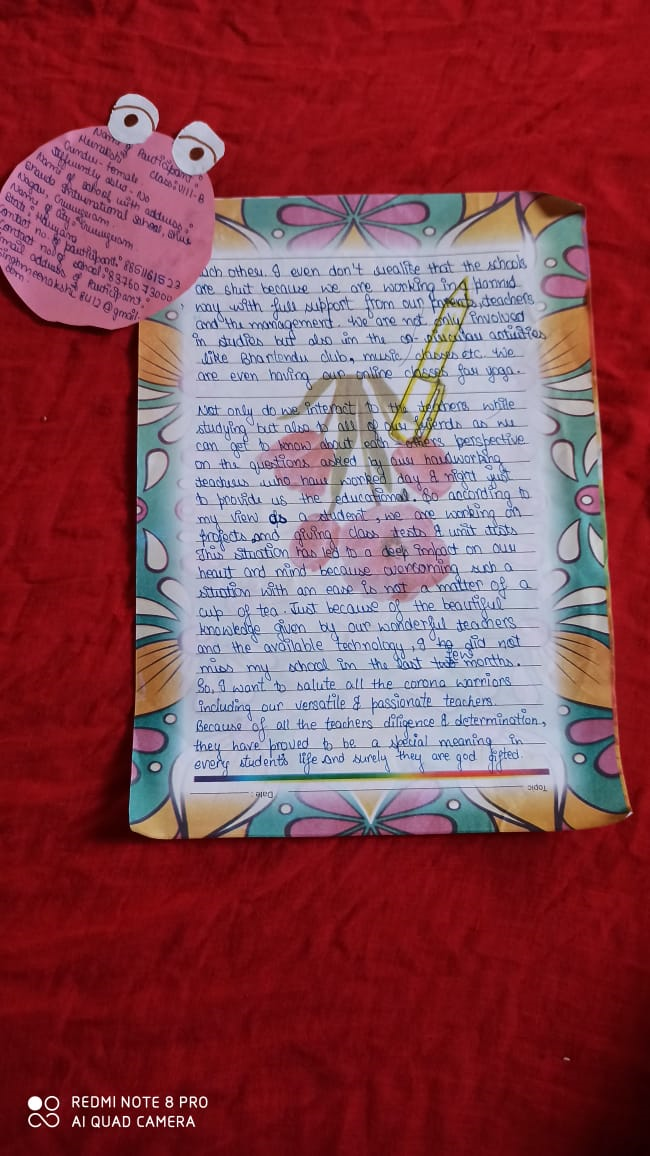 Name of Participant :
Meenakshi Class: VIII-B
Gender- Female
Differently able- No
Name of school with address :
International School,
Nagar, Gurugram.
Name of City : Gurugram
State : Haryana
Contact no. of participant:
Contact no. of school:
Email address of Participant:
com.
each other. I even don't realise that the schools
are shut because we are working in a planned
way with full support from our parents, teachers
and the management. We are not only involved
in studies but also in the co-curricular activities
like Bhartendu club, music classes etc. We
are even having our online classes for yoga.
Not only do we interact to the teachers while
studying but also to all of our friends as we
can get to know about each others perspective
on the questions asked by our hardworking
teachers who have worked day & night just
to provide us the educational. So according to
my view as a student, we are working on
projects and giving class tests & unit tests
This situation has led to a deep impact on our
heart and mind because overcoming such a
situation with an ease is not a matter of a
cup of tea. Just because of the beautiful
knowledge given by our wonderful teachers
and the available technology, I did not
miss my school in the last few months.
So, I want to salute all the corona warriors
including our versatile & passionate teachers.
Because of all the teachers diligence & determination,
they have proved to be a special meaning in
every students life and surely they are god gifted.
Date :
Topic
REDMI NOTE 8 PRO
AI QUAD CAMERA